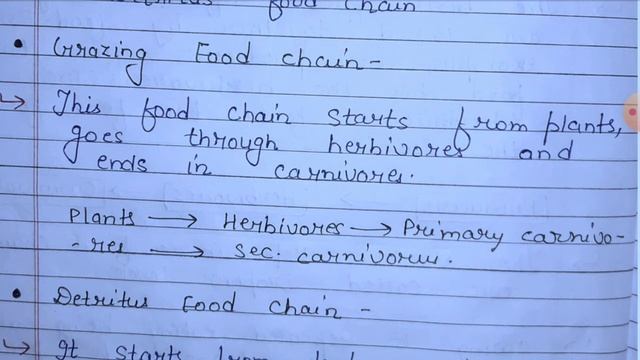 food chain
• Grazing Food chain-
→ This food chain starts from plants,
goes through herbivores and
ends in carnivores.
Plants → Herbivores → Primary carnivo-
-res → Sec. carnivorus.
• Detritus Food chain -
→ It starts from